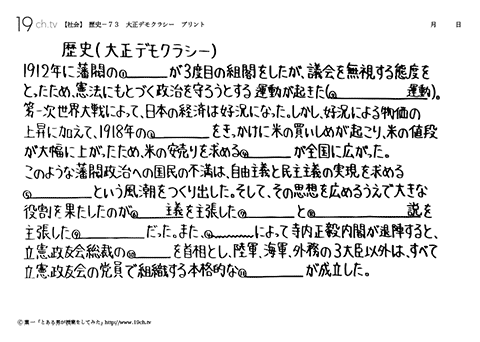 19ch.tv 【社会】 歴史－73 大正デモクラシー プリント 月 日
歴史(大正デモクラシー)
1912年に藩閥の①＿＿＿が3度目の組閣をしたが、議会を無視する態度を
とったため、憲法にもとづく政治を守ろうとする運動が起きた(②＿＿＿運動)。
第一次世界大戦によって、日本の経済は好況になった。しかし、好況による物価の
上昇に加えて、1918年の③＿＿＿をきっかけに米の買いしめが起こり、米の値段
が大幅に上がったため、米の安売りを求める④＿＿＿が全国に広がった。
このような藩閥政治への国民の不満は、自由主義と民主主義の実現を求める
⑤＿＿＿という風潮をつくり出した。そして、その思想を広めるうえで大きな
役割を果たしたのが⑥＿＿＿主義を主張した⑦＿＿＿と⑧＿＿＿説を
主張した⑨＿＿＿だった。また、④＿＿＿によって寺内正毅内閣が退陣すると、
立憲政友会総裁の⑩＿＿＿を首相とし、陸軍、海軍、外務の3大臣以外は、すべて
立憲政友会の党員で組織する本格的な⑪＿＿＿が成立した。
Ⓒ 葉一「とある男が授業をしてみた」http://www.19ch.tv